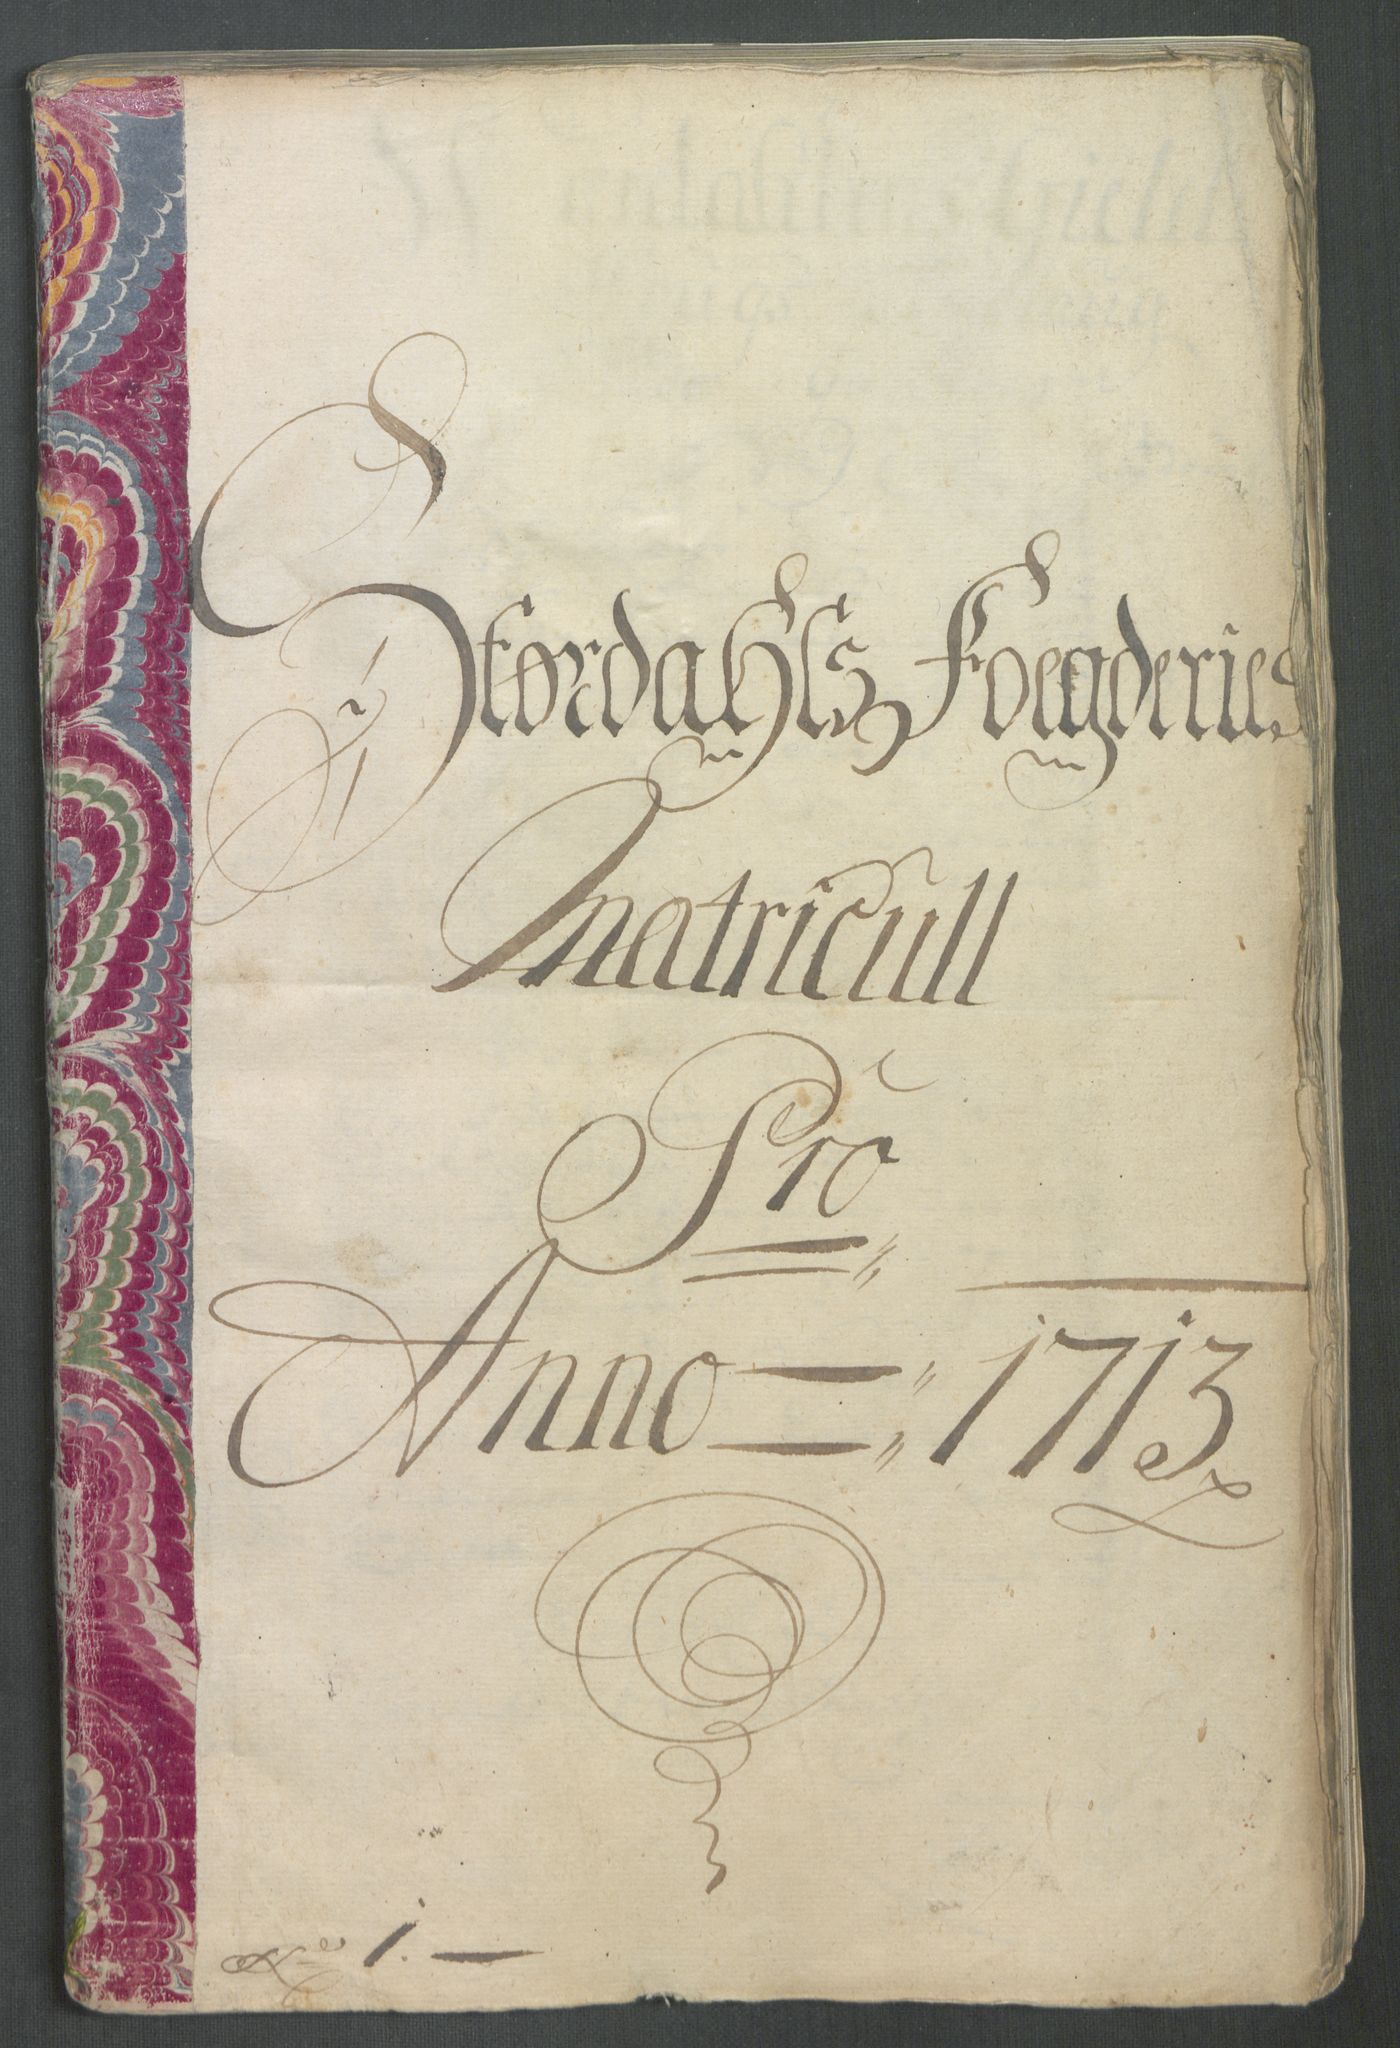 Størdahls Foegderies
Matricull
Pro
Anno = 1713
No 1. —